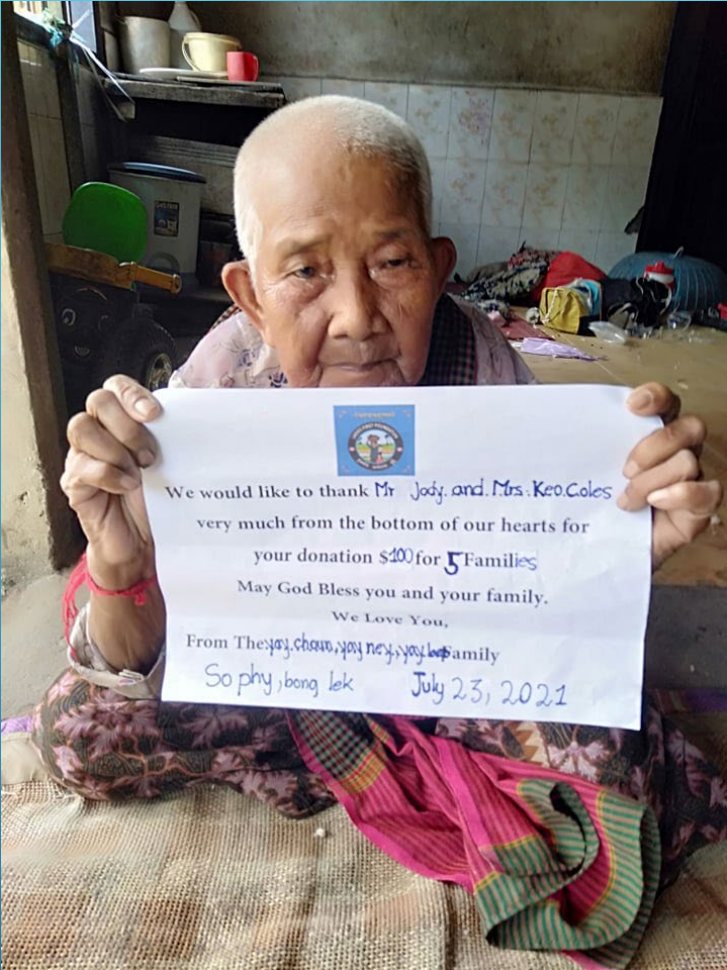 We would like to thank Mr Jody. and. Mrs. Keo. Coles
very much from the bottom of our hearts for
your donation $100 for 5 Families
May God Bless you and your family.
We Love You,
From The yay. chaun, yay ney, yay Family
So phy, bong lek July 23, 2021